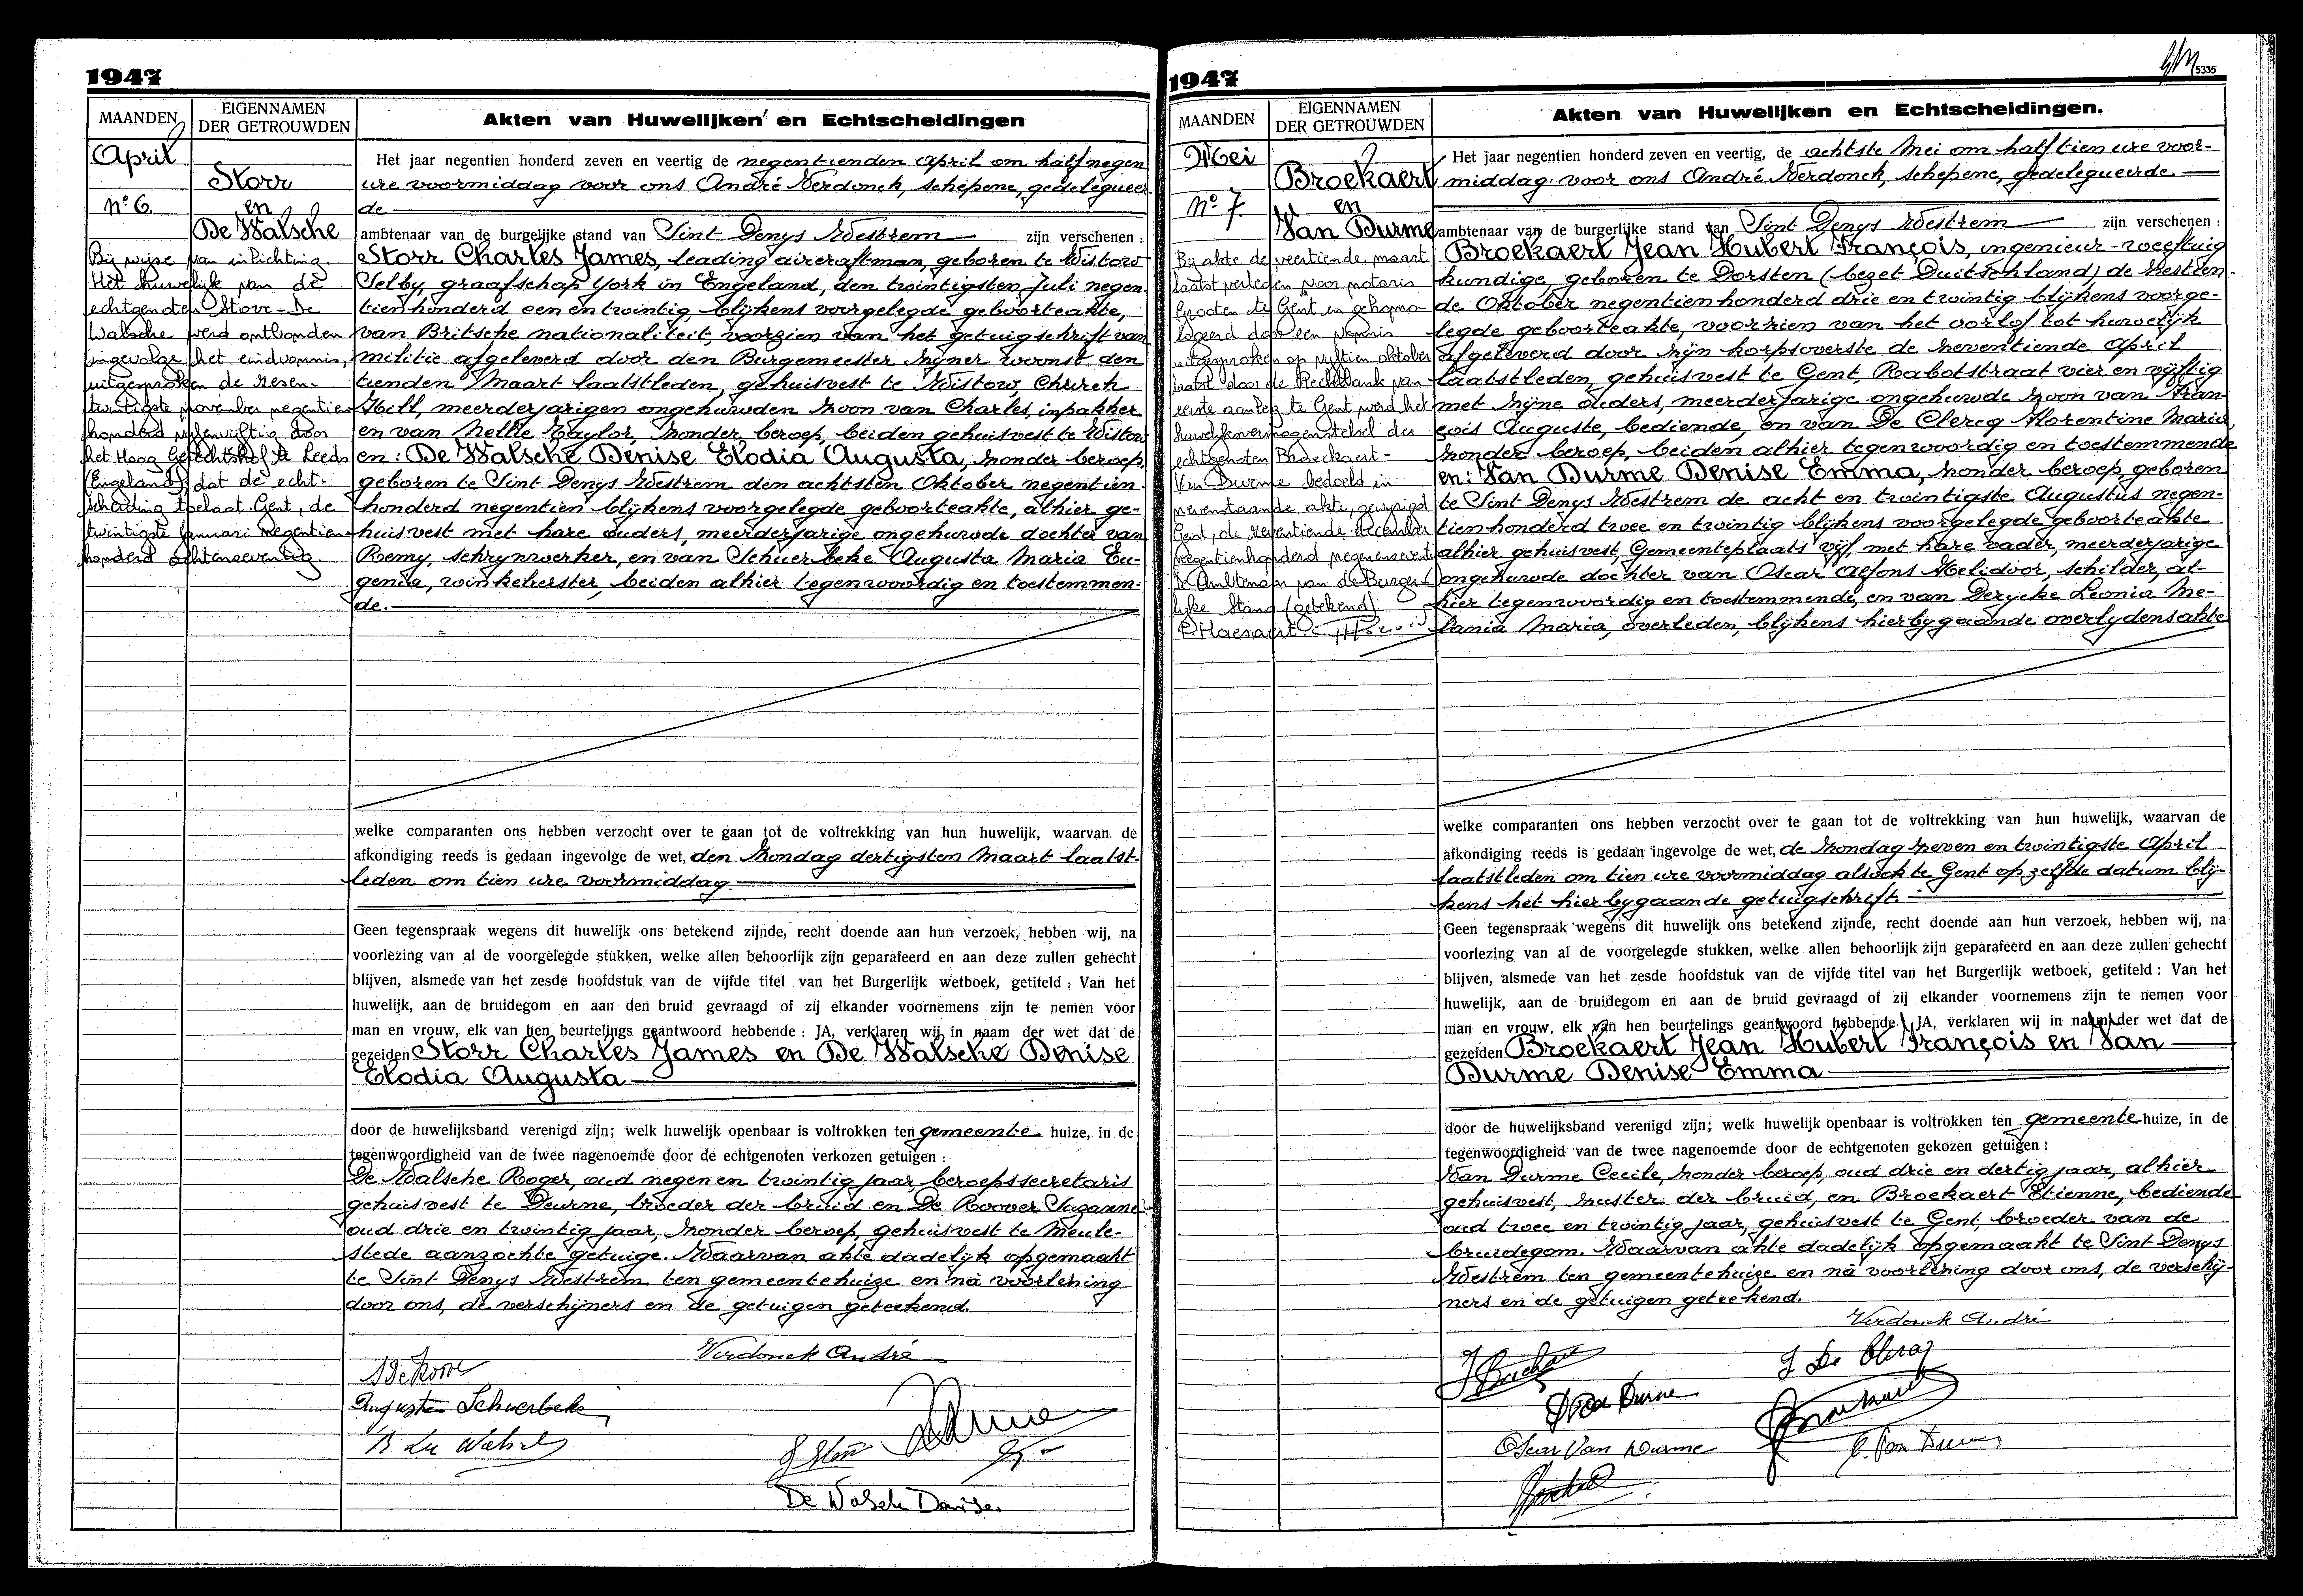 1947
MAANDEN
EIGENNAMEN
DER GETROUWDEN
Akten van Huwelijken en Echtscheidingen
April
Nº 6.
Storr
en
De Walsche
Bij wijze van inlichting.
Het huwelijk van de
echtgenoten Storr-De
Walsche werd ontbonden
ingevolge het eindvonnis,
uitgesproken de zesen-
twintigste november negentien
honderd negenvijftig door
het Hoog Gerechtshof te Leeds
(Engeland) dat de echt-
scheiding toelaat. Gent, de
twintigste januari negentien
honderd achtenseventig.
Het jaar negentien honderd zeven en veertig de negentienden April om half negen
ure voormiddag voor ons André Verdonck, schepene, gedelegueer
de
ambtenaar van de burgelijke stand van Sint Denys Westrem zijn verschenen :
Storr Charles James, leading aircraftman, geboren te Wistow
Selby, graafschap York in Engeland, den twintigsten Juli negen
tienhonderd een en twintig, blijkens voorgelegde geboorteakte,
van Britsche nationaliteit, voorzien van het getuigschrift van
militie afgeleverd door den Burgemeester zijner woonst den
tienden Maart laatstleden, gehuisvest te Wistow Church
Hill, meerderjarigen ongehuwden zoon van Charles, inpakker
en van Nellie Taylor, zonder beroep, beiden gehuisvest te Wistow
en: De Walsche Denise Elodia Augusta, zonder beroep,
geboren te Sint Denys Westrem den achtsten Oktober negentien
honderd negentien blijkens voorgelegde geboorteakte, alhier ge-
huisvest met hare ouders, meerderjarige ongehuwde dochter van
Remy, schrynwerker, en van Schuerbeke Augusta Maria Eu-
genia, winkelierster, beiden alhier tegenwoordig en toestemmen-
de.
welke comparanten ons hebben verzocht over te gaan tot de voltrekking van hun huwelijk, waarvan de
afkondiging reeds is gedaan ingevolge de wet, den Zondag dertigsten Maart laatst-
leden om tien ure voormiddag.
Geen tegenspraak wegens dit huwelijk ons betekend zijnde, recht doende aan hun verzoek, hebben wij, na
voorlezing van al de voorgelegde stukken, welke allen behoorlijk zijn geparafeerd en aan deze zullen gehecht
blijven, alsmede van het zesde hoofdstuk van de vijfde titel van het Burgerlijk wetboek, getiteld : Van het
huwelijk, aan de bruidegom en aan den bruid gevraagd of zij elkander voornemens zijn te nemen voor
man en vrouw, elk van hen beurtelings geantwoord hebbende : JA, verklaren wij in naam der wet dat de
gezeiden Storr Charles James en De Walsche Denise
Elodia Augusta
door de huwelijksband verenigd zijn; welk huwelijk openbaar is voltrokken ten gemeente huize, in de
tegenwoordigheid van de twee nagenoemde door de echtgenoten verkozen getuigen :
De Walsche Roger, oud negen en twintig jaar, beroepssecretaris
gehuisvest te Deurne, broeder der bruid en De Roover Suzanne
oud drie en twintig jaar, zonder beroep, gehuisvest te Meule-
stede aanzochte getuige. Waarvan akte dadelijk opgemaakt
te Sint Denys Westrem ten gemeentehuize en na voorlezing
door ons, de verschijners en de getuigen geteekend.
Verdonck André
Augusta Schuerbeke
De Walsche Denise
1947
5335
MAANDEN
EIGENNAMEN
DER GETROUWDEN
Akten van Huwelijken en Echtscheidingen.
Mei
Nº 7.
Broekaert
en
Van Durme
Bij akte de veertiende maart
laatst verleden voor notaris
Grooten te Gent en gehomo-
logeerd door een vonnis
uitgesproken op vijftien oktober
laatst door de Rechtbank van
eerste aanleg te Gent werd het
huwelijksvermogenstelsel der
echtgenoten Broeckaert-
Van Durme bedoeld in
nevenstaande akte, gewijzigd
Gent, de zeventiende december
negentienhonderd negenenseventig
De Ambtenaar van de Burger-
lijke Stand (getekend)
P. Haesaert.
Het jaar negentien honderd zeven en veertig, de achtste Mei om half tien ure voor-
middag voor ons André Verdonck, schepene, gedelegueerde
ambtenaar van de burgerlijke stand van Sint Denys Westrem zijn verschenen :
Broekaert Jean Hubert François, ingenieur-weegtuig
kundige, geboren te Dorsten (bezet Duitschland) de zestien-
de Oktober negentienhonderd drie en twintig blijkens voorge-
legde geboorteakte, voorzien van het oorlof tot huwelijk
afgeleverd door zijn korpsoverste de zeventiende April
laatstleden, gehuisvest te Gent, Rabotstraat vier en vijftig
met zijne ouders, meerderjarige ongehuwde zoon van Fran-
çois Auguste, bediende, en van De Clercq Florentine Maria,
zonder beroep, beiden alhier tegenwoordig en toestemmende
en: Van Durme Denise Emma, zonder beroep, geboren
te Sint Denys Westrem de acht en twintigste Augustus negen-
tienhonderd twee en twintig blijkens voorgelegde geboorteakte
alhier gehuisvest, Gemeenteplaats vijf, met hare vader, meerderjarige
ongehuwde dochter van Oscar Alfons Helidoor, schilder, al-
hier tegenwoordig en toestemmende, en van Derycke Leonia Me-
lania Maria, overleden, blijkens hierbygaande overlydensakte
welke comparanten ons hebben verzocht over te gaan tot de voltrekking van hun huwelijk, waarvan de
afkondiging reeds is gedaan ingevolge de wet, de Zondag zeven en twintigste April
laatstleden om tien ure voormiddag alsook te Gent op zelfde datum blij-
kens het hierbygaande getuigschrift.
Geen tegenspraak wegens dit huwelijk ons betekend zijnde, recht doende aan hun verzoek, hebben wij, na
voorlezing van al de voorgelegde stukken, welke allen behoorlijk zijn geparafeerd en aan deze zullen gehecht
blijven, alsmede van het zesde hoofdstuk van de vijfde titel van het Burgerlijk wetboek, getiteld : Van het
huwelijk, aan de bruidegom en aan de bruid gevraagd of zij elkander voornemens zijn te nemen voor
man en vrouw, elk van hen beurtelings geantwoord hebbende : JA, verklaren wij in naam der wet dat de
gezeiden Broekaert Jean Hubert François en Van
Durme Denise Emma
door de huwelijksband verenigd zijn; welk huwelijk openbaar is voltrokken ten gemeente huize, in de
tegenwoordigheid van de twee nagenoemde door de echtgenoten gekozen getuigen :
Van Durme Cecile, zonder beroep, oud drie en dertig jaar, alhier
gehuisvest, zuster der bruid, en Broekaert Etienne, bediende
oud twee en twintig jaar, gehuisvest te Gent, broeder van de
bruidegom. Waarvan akte dadelijk opgemaakt te Sint Denys
Westrem ten gemeentehuize en na voorlezing door ons, de verschij-
ners en de getuigen geteekend.
Verdonck André
Oscar Van Durme